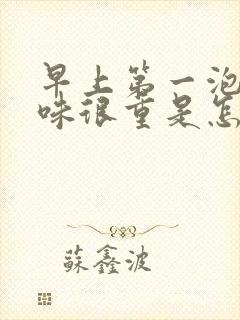 早上第一泡
味很重是怎
蘇鑫波